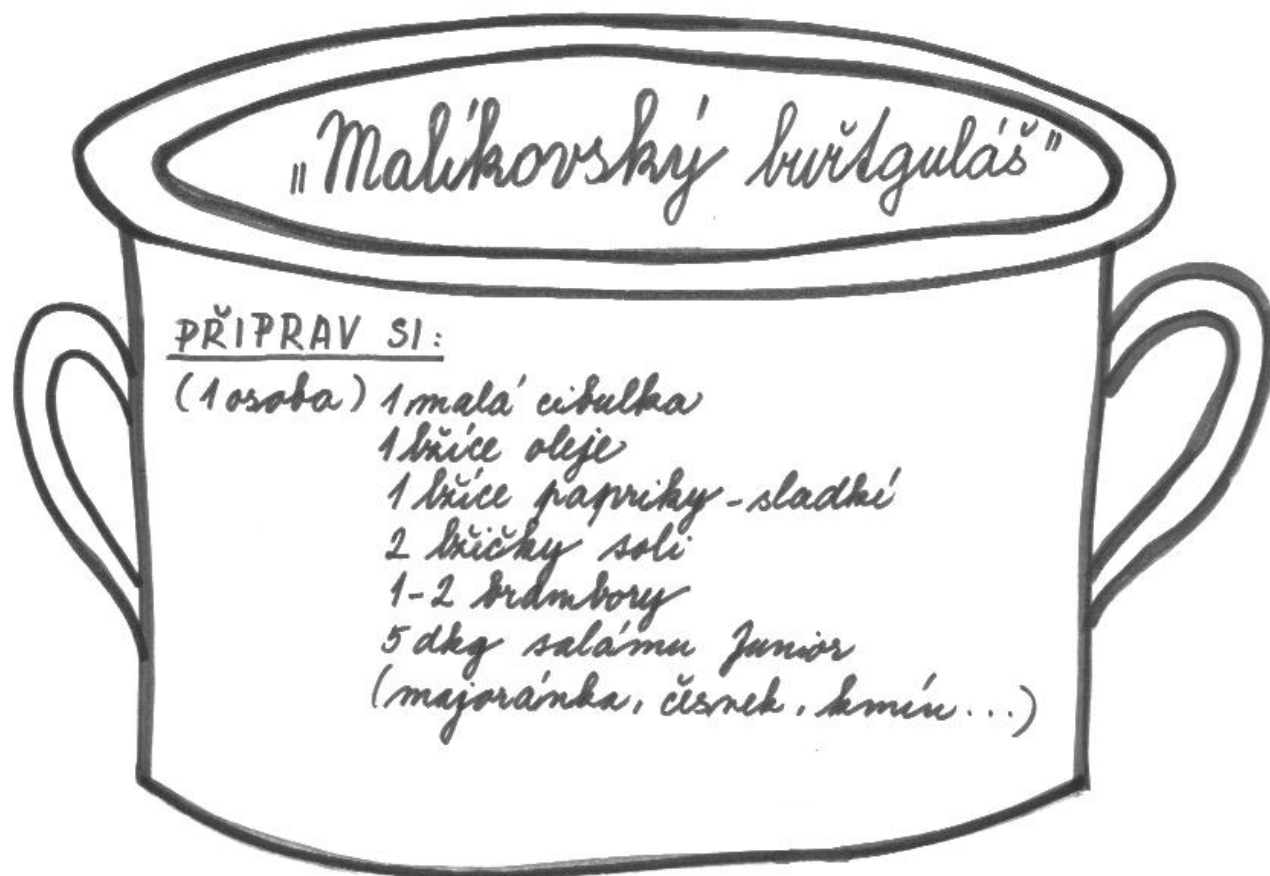 "Malíkovský buřtguláš"
PŘIPRAV SI:
(1 osoba) 1 malá cibulka
1 lžíce oleje
1 lžíce papriky - sladké
2 lžičky soli
1-2 brambory
5 dkg salámu Junior
(majoránka, česnek, kmín...)